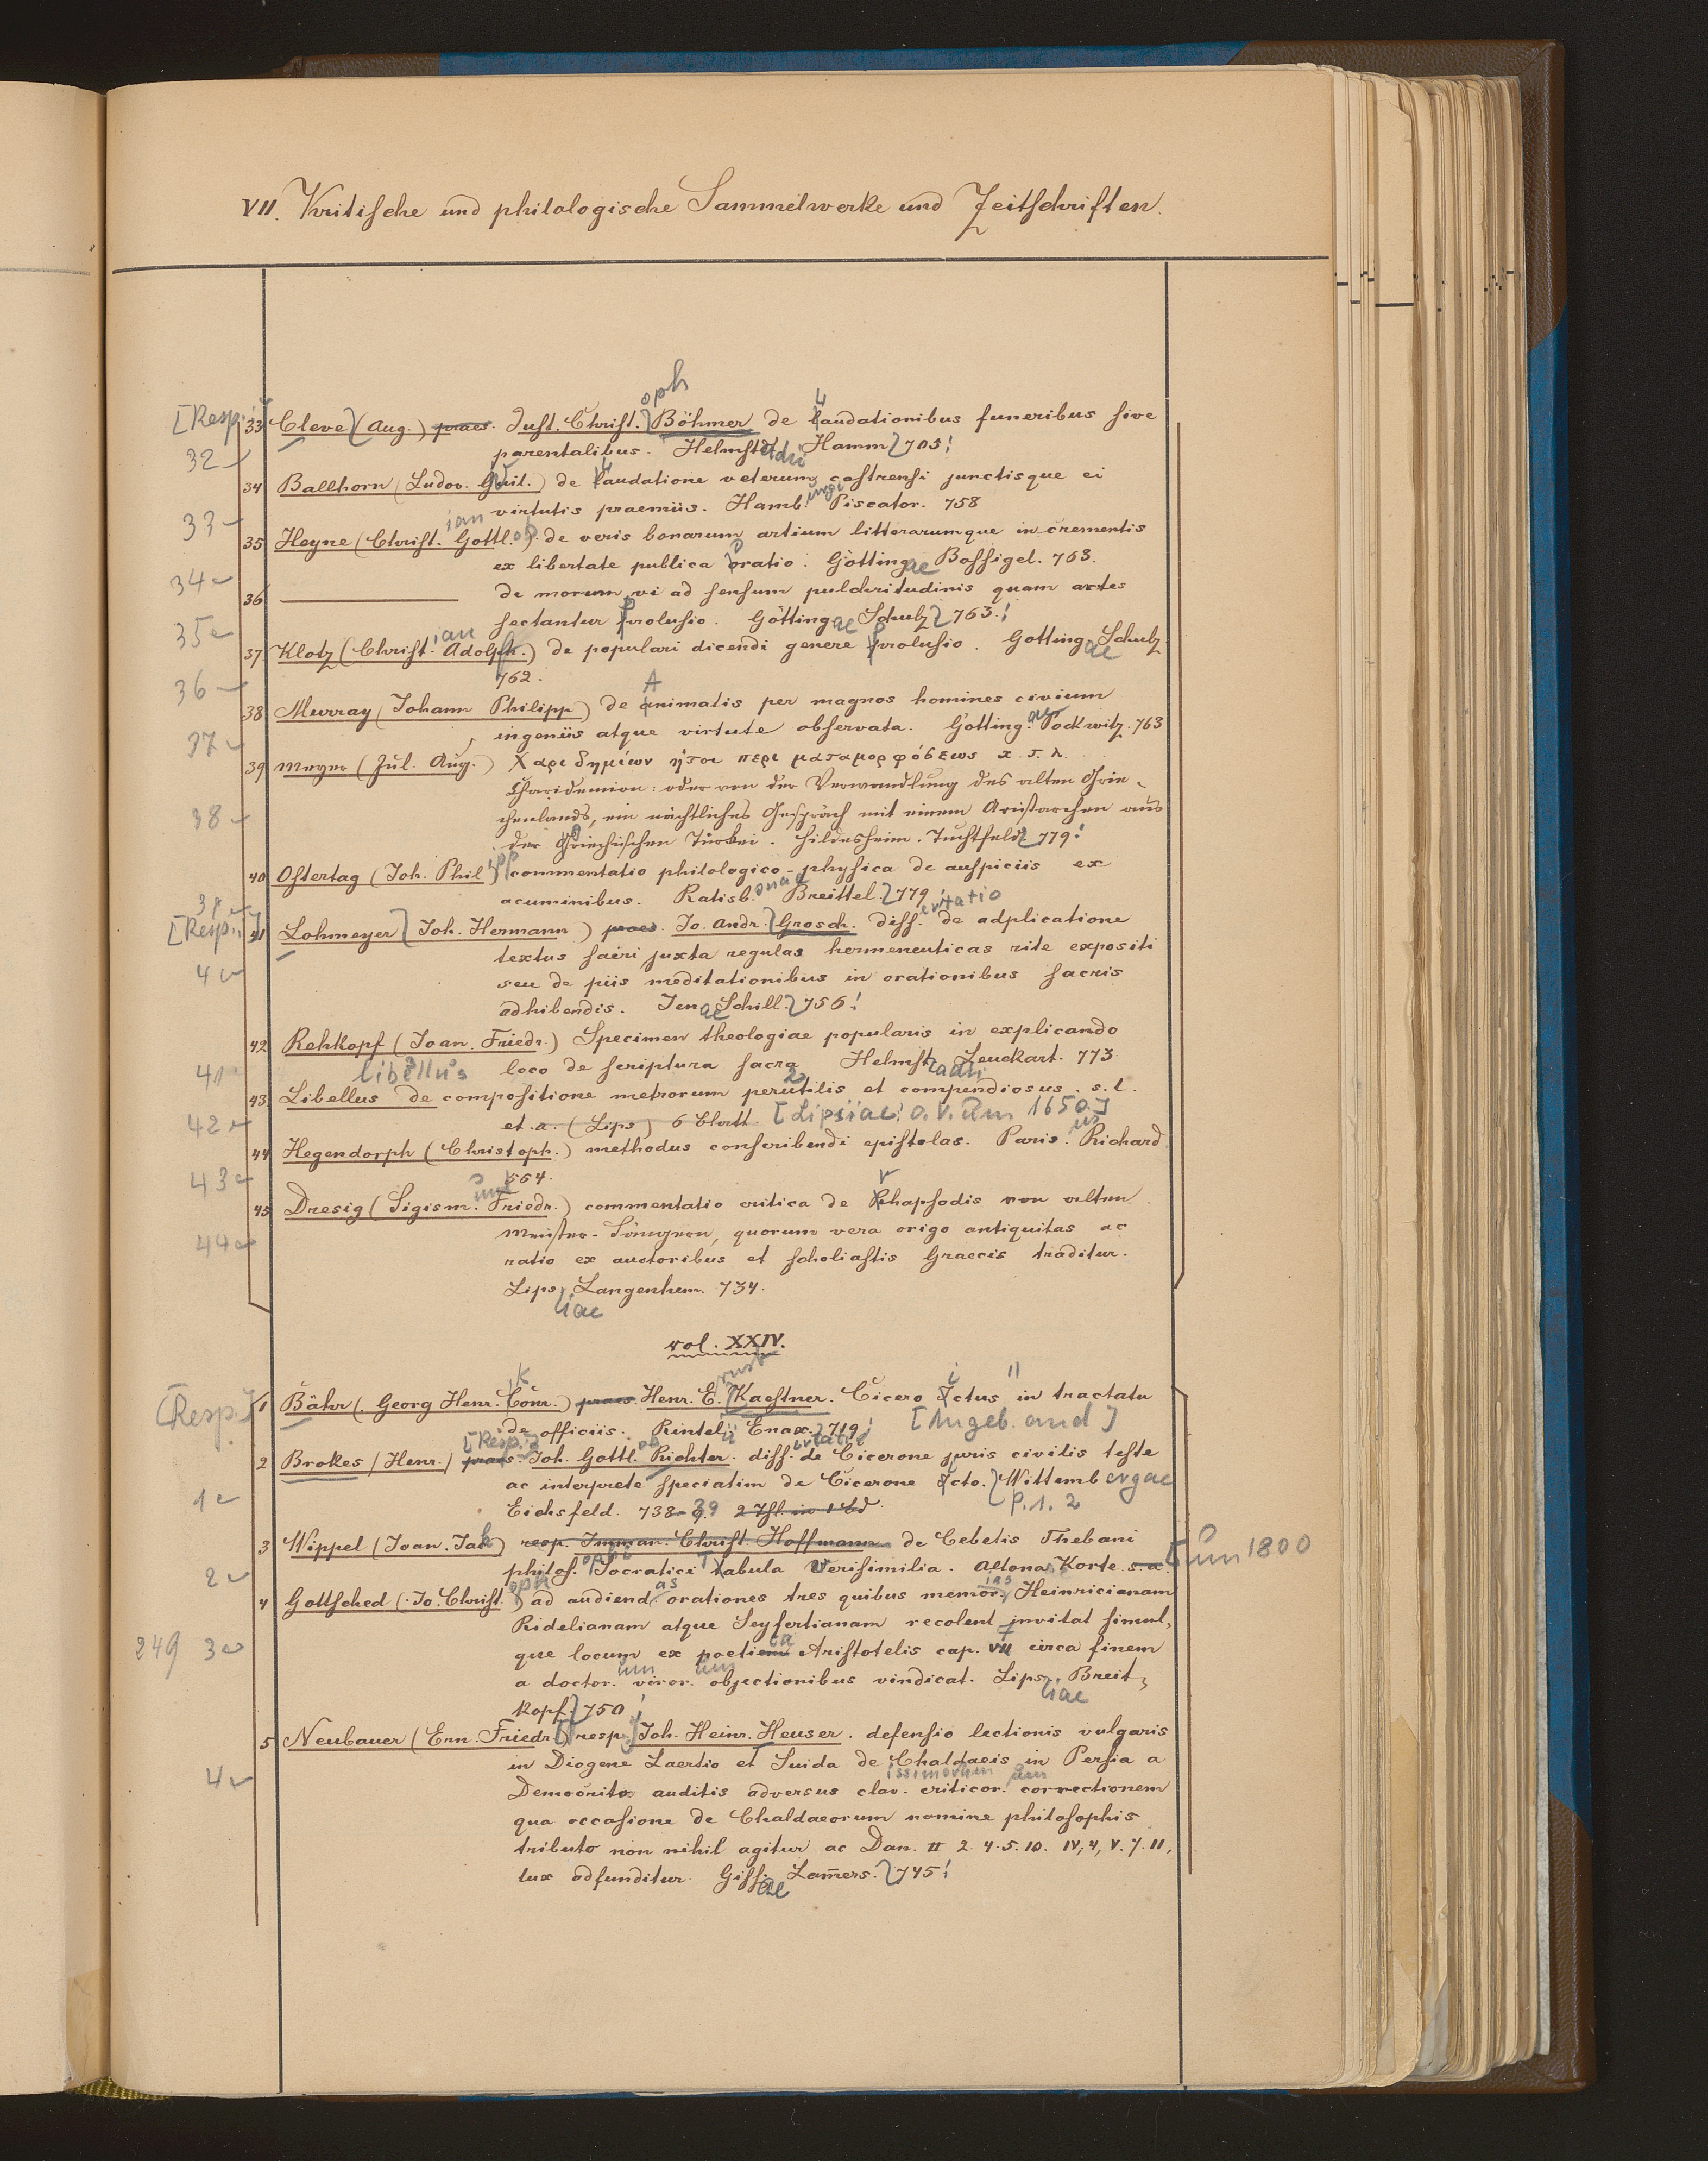 VII. Kritische und philologische Sammelwerke und Zeitschriften.
oph
[Resp.] 33 Cleve (Aug.) praes. Just. Christ. Böhmer de Laudationibus funeribus sive
32 parentalibus. Helmstadii Hamm 705!
34 Ballhorn (Ludov. Guil.) de Laudatione veterum castrensi junctisque ei
33 virtutis praemiis. Hamburgi Piscator. 758
35 Heyne (Christian Gottlob.) de veris bonarum artium litterarumque incrementis
ex libertate publica oratio. Göttingae Bossigel. 763.
34
36 ——— de morum vi ad sensum pulchritudinis quam artes
sectantur prolusio. Göttingae Schulz 763.!
35
37 Klotz (Christian Adolph.) de populari dicendi genere prolusio. Gottingae Schulz
762.
36
38 Murray (Johann Philipp) de Animatis per magnos homines civium
ingeniis atque virtute observata. Gottingae Pockwitz. 763
37
39 Meyer (Jul. Aug.) Χαριδημίων ήτοι περι ματαμορφόσεως κ. τ. λ.
Charidemion: oder von der Verwandlung des alten Grie-
38 chenlands, ein nächtliches Gespräch mit einem Aristarchen aus
der Griechischen Türkei. Hildesheim. Tuchtfeld 779!
40 Ostertag (Joh. Philipp) commentatio philologico-physica de auspiciis ex
acuminibus. Ratisbonae Breittel. 779!
39
[Resp.] 41 Lohmeyer Joh. Hermann) praes. Jo. Andr. Grosch. dissertatio de adplicatione
textus sacri juxta regulas hermeneuticas rite expositi
40 seu de piis meditationibus in orationibus sacris
adhibendis. Jenae Schill. 756!
42 Rehkopf (Joan. Friedr.) Specimen theologiae popularis in explicando
41 loco de scriptura sacra Helmstadii Leuckart. 773.
libellus
43 Libellus de compositione metrorum perutilis et compendiosus. s. l.
42 et. a. (Lips) 6 Blatt [Lipsiae! o. V. um 1650.]
44 Hegendorph (Christoph.) methodus conscribendi epistolas. Paris. Richard
43 564.
45 Dresig (Sigism. Friedr.) commentatio critica de Rhapsodis von alten
44 Meister-Sängern, quorum vera origo antiquitas ac
ratio ex auctoribus et scholiastis Graecis traditur.
Lipsiae Langenhem. 734.
vol. XXIV.
[Resp.] 1 Bähr (Georg Henr. Conr.) praes. Henr. Ernst Kaestner. Cicero Ictus in tractatu
de officiis. Rintelii Enax. 719! [Angeb. and]
2 Brokes (Henr.) praes. [Resp.] Joh. Gottlob Richter. dissertatio de Cicerone juris civilis teste
1 ac interprete speciatim de Cicerone Icto. Wittembergae
Eichsfeld. 738-39 2 Thl. in 1 Bd. P. 1. 2
3 Wippel (Joan. Jak) resp. Imman. Christ. Hoffmann de Cebetis Thebani
2 philosophi Socratici Tabula Verisimilia. Altona Korte s. a. [um 1800
4 Gottsched (Jo. Christoph) ad audiendas orationes tres quibus memorias Heinricianam
Ridelianam atque Seyfertianam recolent invitat simul-
249 3 que locum ex poetica Aristotelis cap. VII circa finem
a doctorum virorum objectionibus vindicat. Lipsiae Breit-
kopf 750!
5 Neubauer (Ern. Friedr.) resp. Joh. Heinr. Heuser. defensio lectionis vulgaris
in Diogene Laertio et Suida de Chaldaeis in Persia a
4 Democrito auditis adversus clarissimorum criticorum correctionem
qua occasione de Chaldaeorum nomine philosophis
tributo non nihil agitur ac Dan. II 2. 4. 5. 10. IV, 4, V. 7. 11,
lux adfunditur. Gissae Lam̄ers. 745!